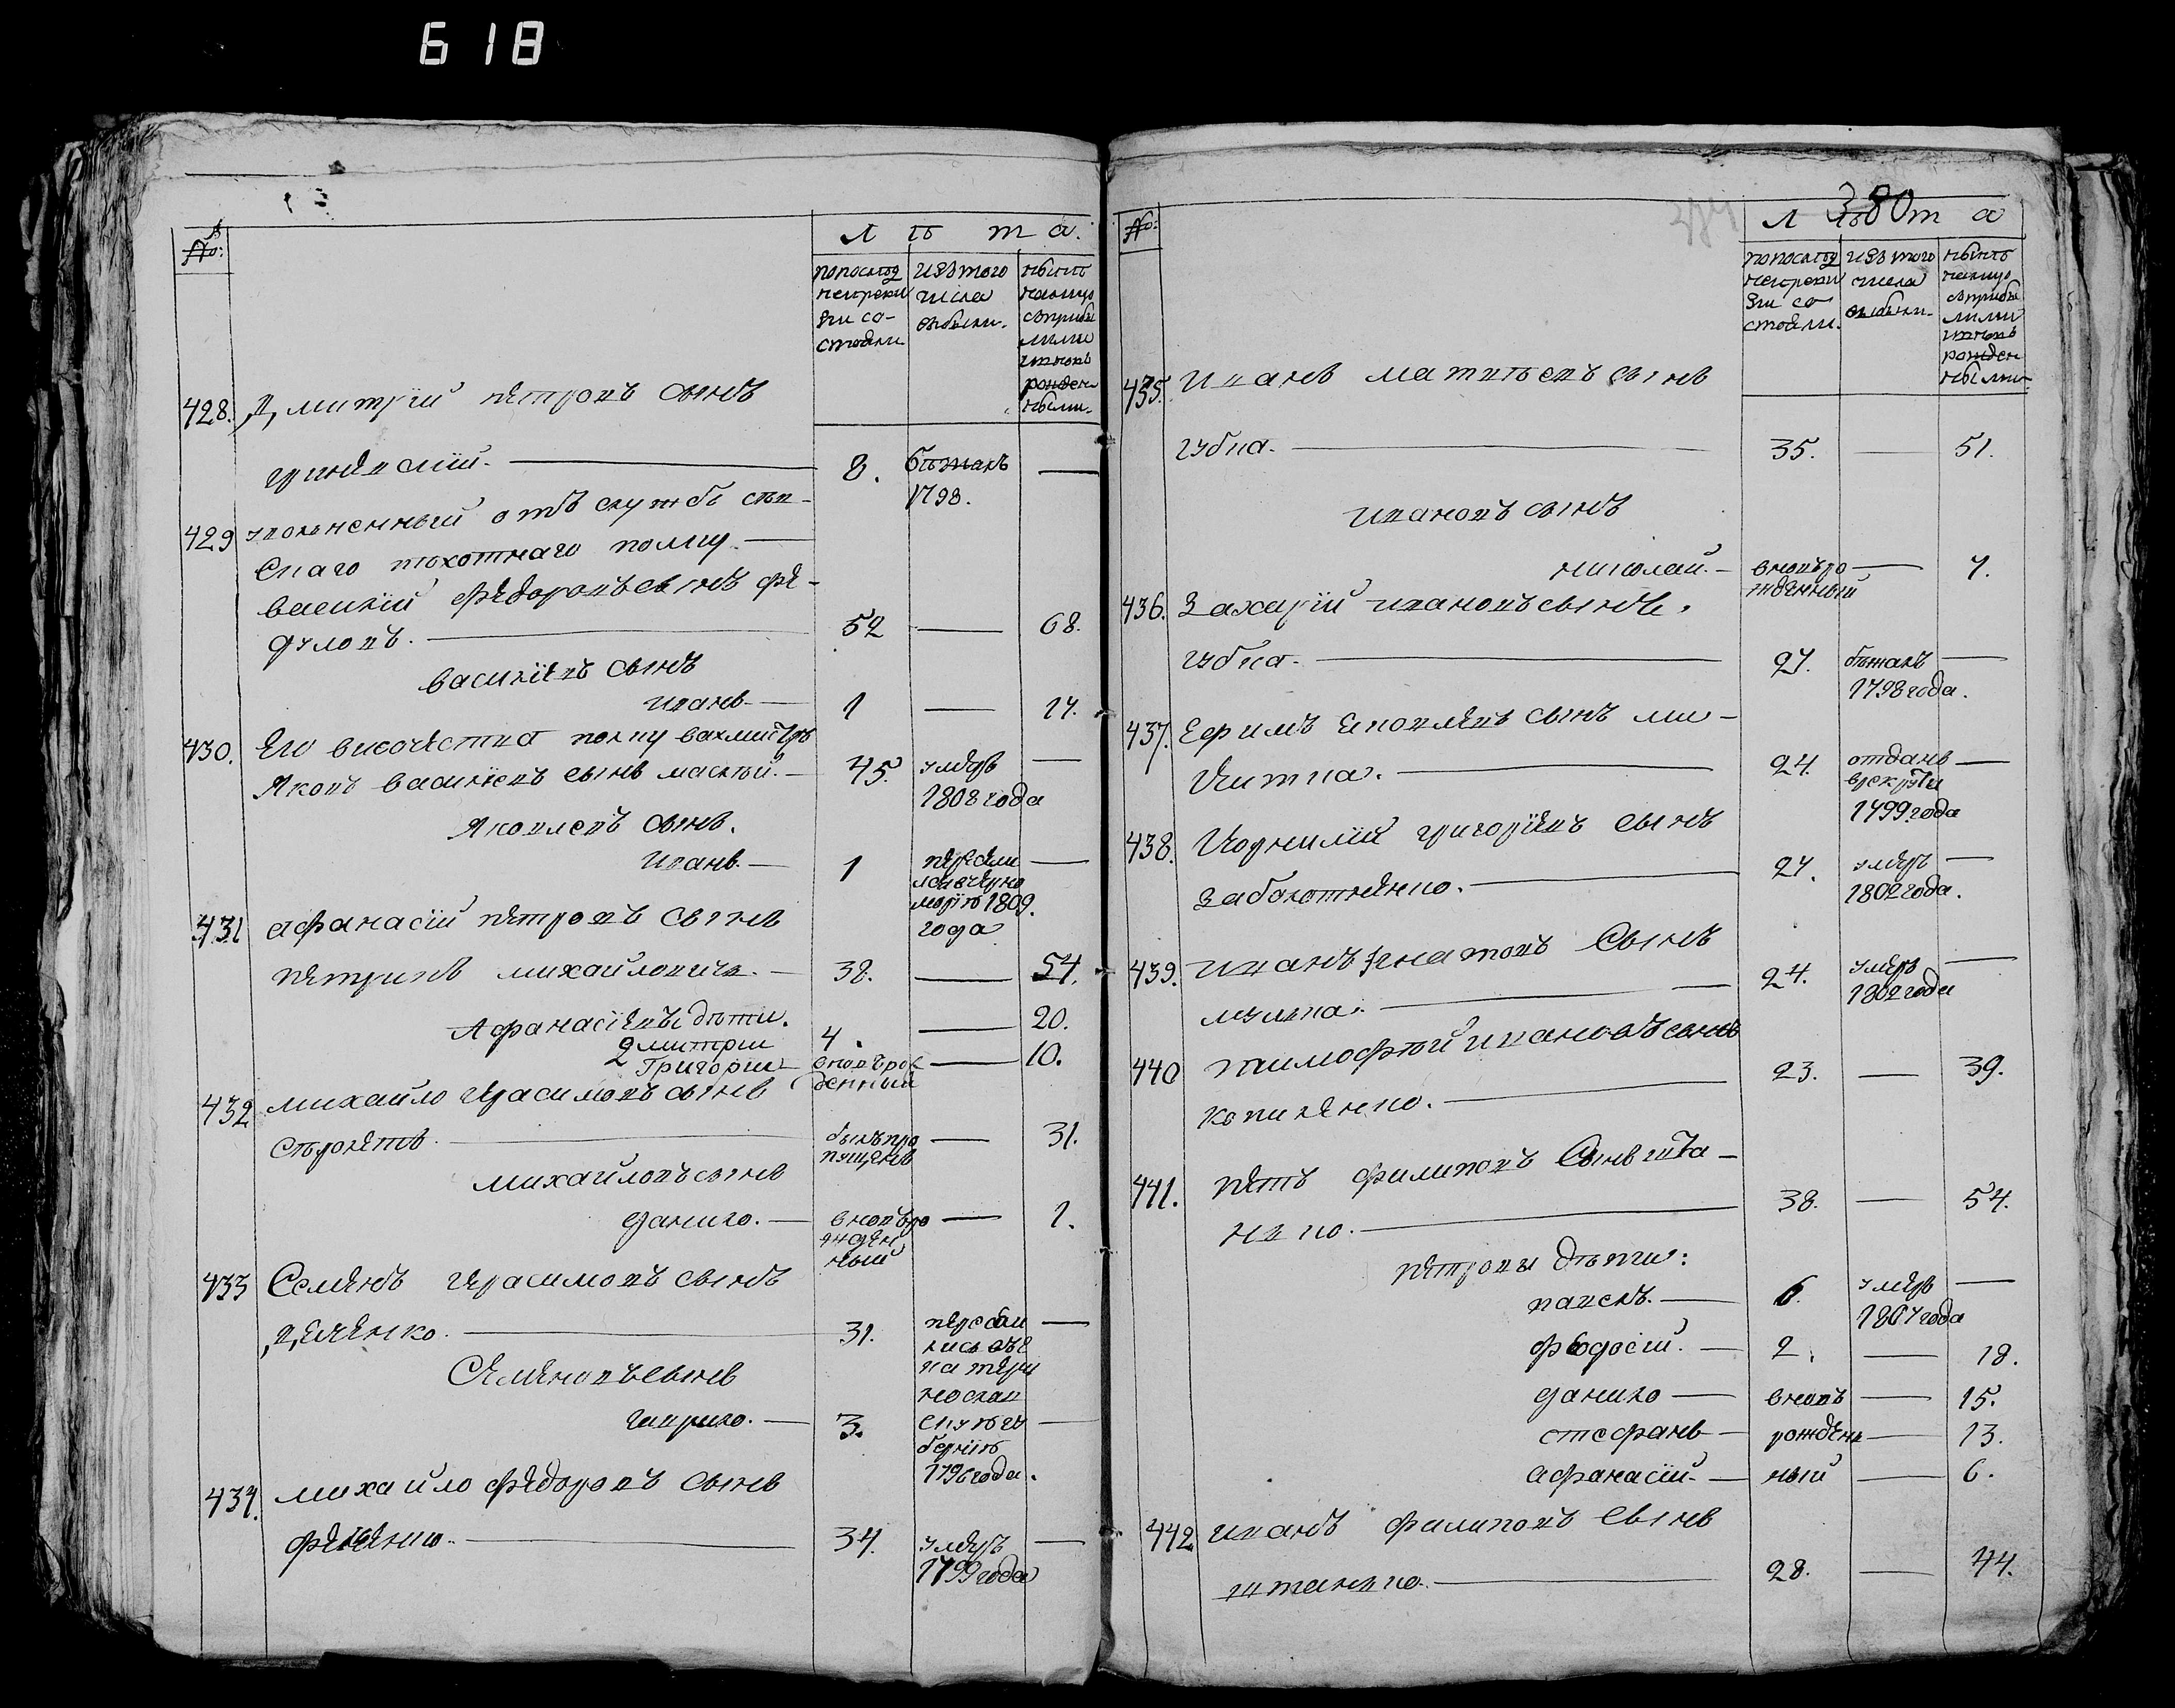 618
№:
Лѣта.
попослѣд
неиреви
зіи со-
стояли
изъ того
числа
выбыли.
нынѣ
налицо
съприбы
лыми
и вновь
рожден
ными.
428. Дмитрій петровъ сынъ
8. бѣжалъ —
1798.
429 уволенный отъ службы
скаго пѣхотнаго полку. —
василій Федоровъ сынъ фе-
дуловъ. — 52 — 68.
василіевъ сынъ
иванъ — 1 — 17.
430. Его височества полку вахмистръ
Яковъ василіевъ сынъ — 45. умеръ —
1808 года
Яковлевъ сынъ.
Иванъ. — 1 —
1809.
года
431 афанасій петровъ сынъ
петринъ михайловичъ. — 38. — 54.
Афанасіевы дѣти.
дмитрии 4. — 20.
Григории — вновьрож — 10.
денный
432 михайло герасимовъ сынъ
былъпро — 31.
пущенъ
михайловъ сынъ
данило. — вновьро — 1.
жден
ный
433 Семенъ герасимовъ сынъ
Дяченко. — 31. —
Семеновъ сынъ
гаврило. — 3. —
1796 года.
434. михайло федоровъ сынъ
34. умеръ —
1799 года
380
№:
Лѣта
попослѣд
неиреви
зіи со-
стояли.
изъ того
числа
выбыли.
нынѣ
налицо
съприбы
лыми
и вновь
рожден
ными
435. Иванъ матвѣевъ сынъ
губка. — 35. — 51.
ивановъ сынъ
николай. — вновьро — 7.
жденный
436. Захарій ивановъ сынъ.
губка. — 27. бѣжалъ —
1798 года.
437. Ефимъ яковлевъ сынъ ми-
китка. — 24. отданъ —
врекруты
1799 года
438. Корнилій григоріевъ сынъ
заболотненко. — 27. умеръ —
1802 года.
439. иванъ игнатовъ сынъ
24. умеръ —
1802 года
440 тимофѣй ивановъ сынъ
копиленко. — 23. — 39.
441. петръ филиповъ сынъ
38. — 54.
петровы дѣти:
павелъ. — 6. умеръ —
1807 года
феодосій. — 2. — 18.
данило — вновь — 15.
стефанъ — рожден — 13.
афанасій — ный — 6.
442 иванъ филиповъ сынъ
28. — 44.